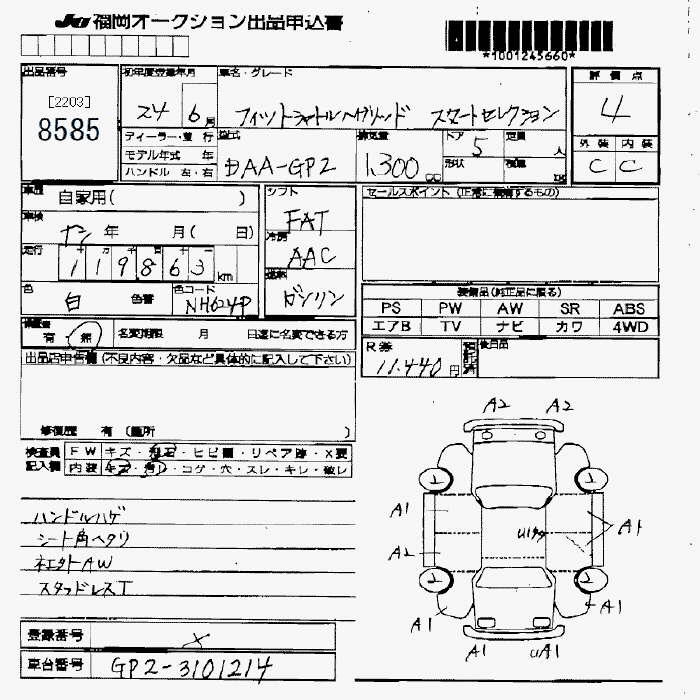 JU 福岡オークション出品申込書
*1001245660*
出品番号
[2203]
8585
初年度登録年月
24年 6月
車名・グレード
フィットシャトルハイブリッド スマートセレクション
評価点
4
外装 内装
C C
ディーラー・並行
モデル年式 年
ハンドル 左・右
型式
DAA-GP2
排気量
1,300 cc
ドア
5
形状
定員 人
積載 K
車歴
自家用( )
車検
年 月( 日)
走行
十 万 千 百 十
119863 km
色
白
色番
色コード
NH624P
シフト
FAT
冷房
AAC
燃料
ガソリン
セールスポイント (正常に機能するもの)
装備品(純正品に限る)
PS PW AW SR ABS
エアB TV ナビ カワ 4WD
R券
11,440円
預託済
後日品
保証書
有 無
名変期限 月 日迄に名変できる方
出品店申告欄 (不良内容・欠品など具体的に記入して下さい)
修復歴 有 (箇所 )
検査員
記入欄
FW キズ・飛石・ヒビ有・リペア跡・X要
内装 キズ・汚レ・コゲ・穴・スレ・キレ・破レ
ハンドルハゲ
シート角ヘタリ
社外AW
スタッドレスT
A2 A2
A1
A1
A2
2 2
2 2
A1
A1
A1
登録番号
×
車台番号
GP2-3101214